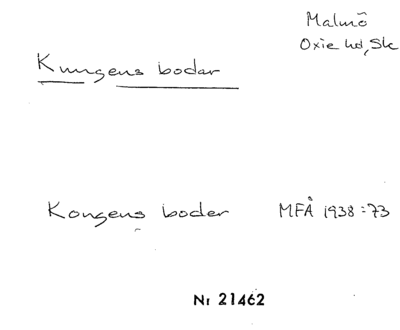 Malmö
Oxie hd, Sk
Kungens bodar
Kongens boder MFÅ 1938:73
Nr 21462